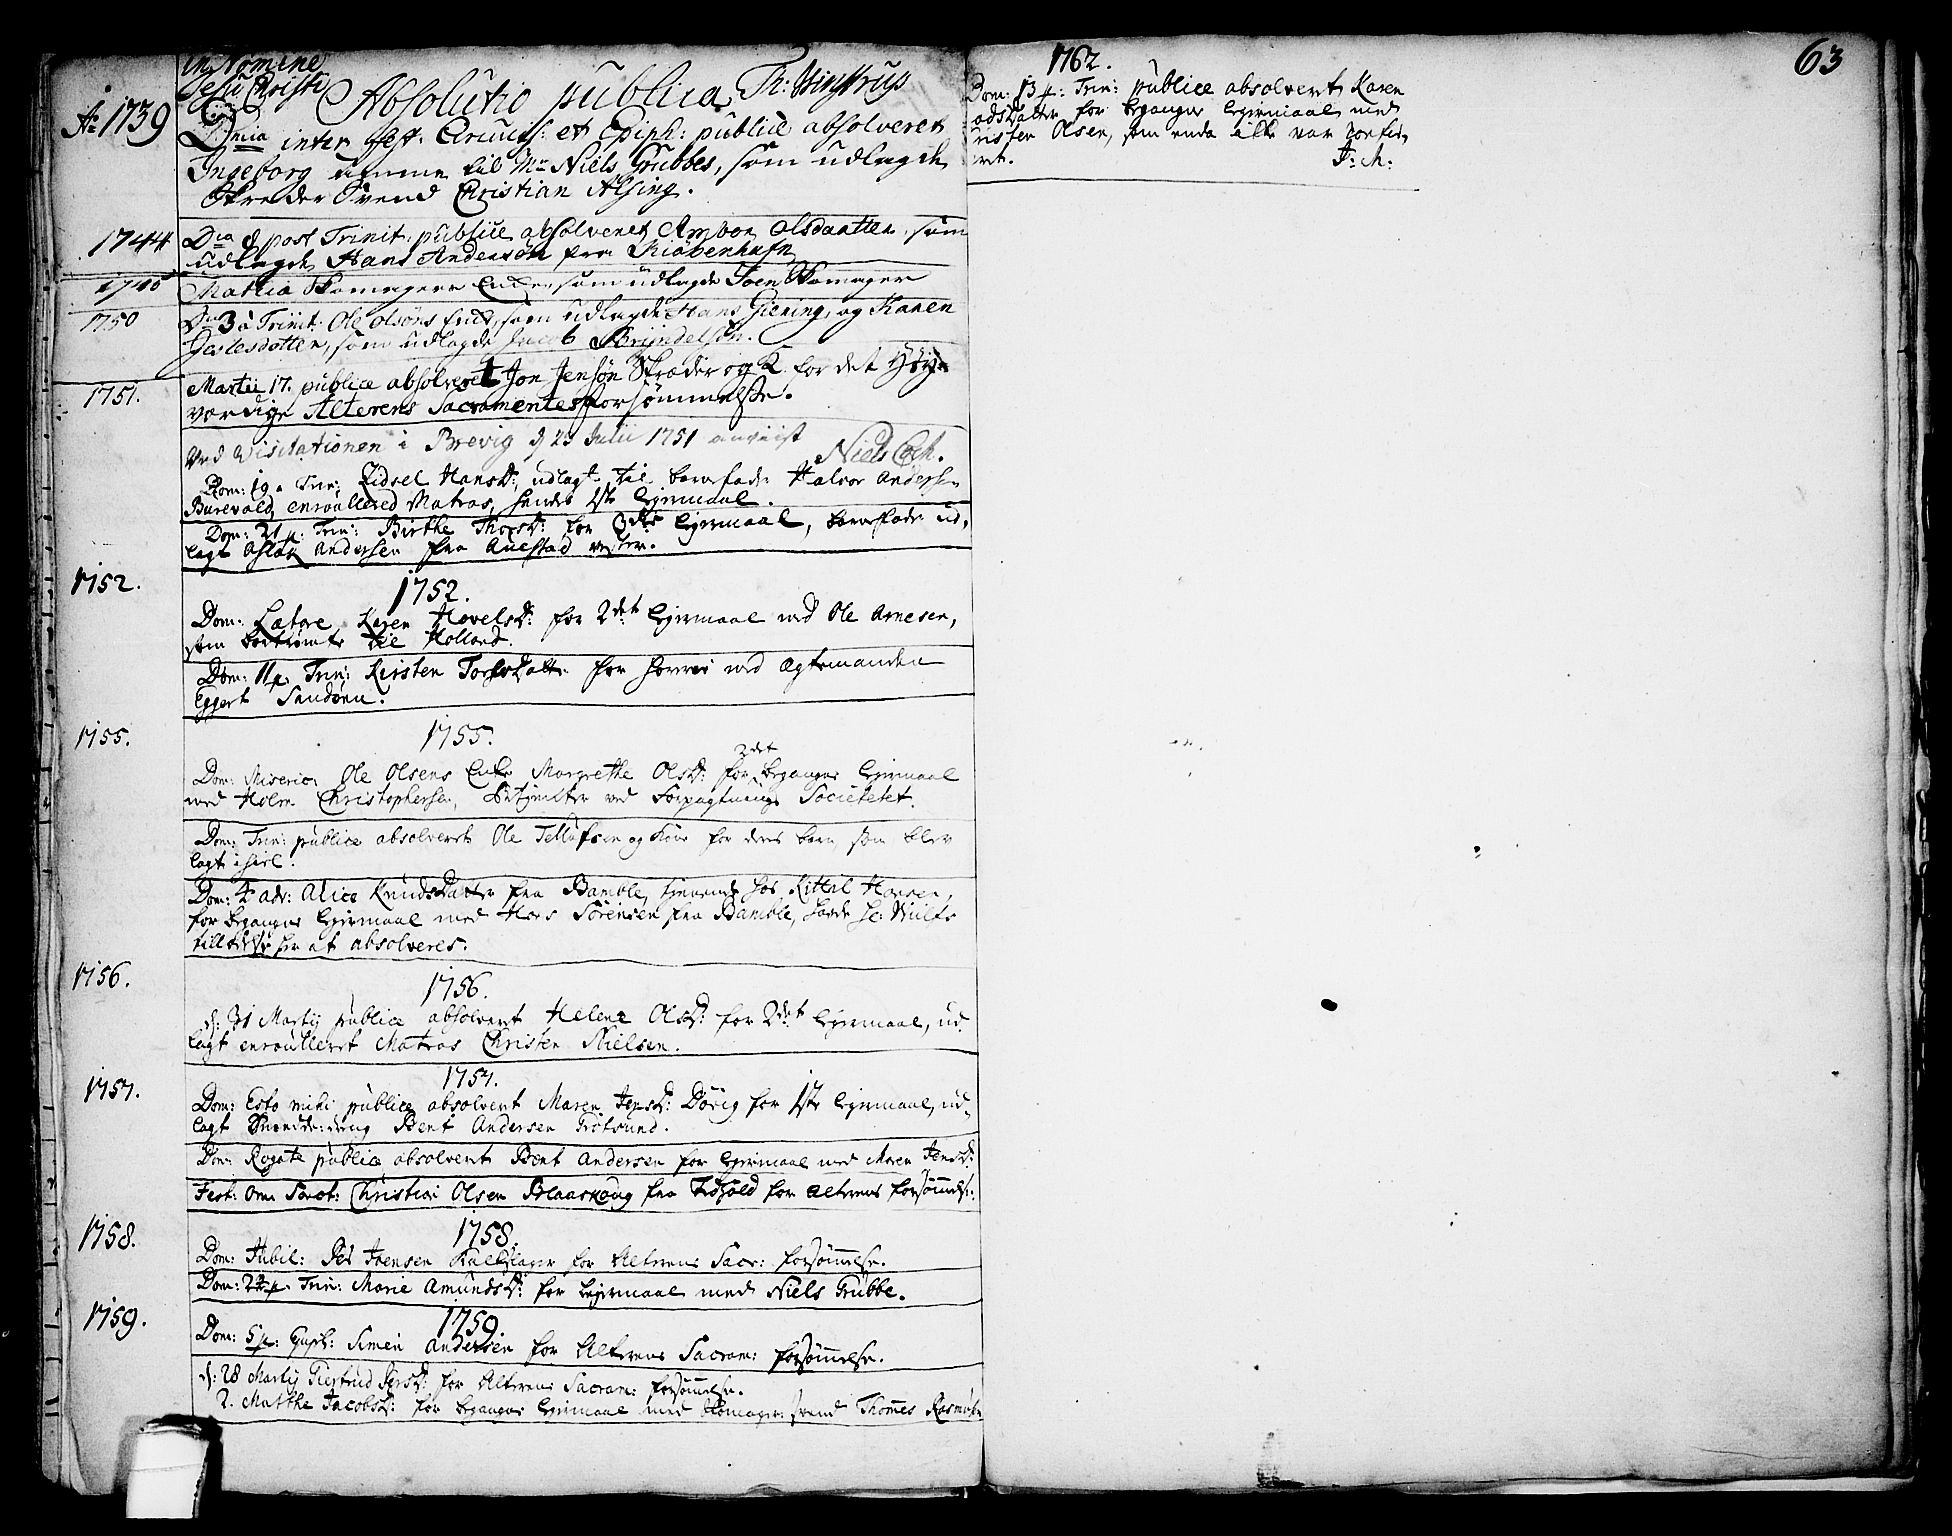 In Nomine
Jesu Christi
Absolutio publica Th: Winstrup
Ao 1739
Dnica inter fest: Circumcis: et Epiph: publice absolveret
Ingeborg amme til Mr Niels Grubbes, som udlagde
Skreder Svend Christian Alsing.
1744
Dca 8 post Trinit: publice absolveret Olsdaatter som
udlagde Hans Andersøn fra Kiøbenhafn
1745
Skomagers Enke, som udlagde Joen Skomager
1750
Dca 3 à Trinit: Ole Olsøns Enke, som udlagde Hans Giening, og Karen
som udlagde Jacob
1751.
Martii 17. publice absolveret Jon Jensøn Skræder og K. for det Høy-
værdige Alterens Sacramentes forsømmelse.
Ved Visitationen i Brevig d 23 Julii 1751 anviist
Niels Cech.
Dom: 19 à Trin: Zidsel Hansd: udlagt til barnefader Halvor Andersen
Burevald, enroullered Matros, hendes 1ste Leiermaal.
Dom: 21 p. Trin: Birthe Thorsd: for 3die Leiermaal, barnefader ud-
lagt Aslak Andersen fra Auestad
1752.
1752.
Dom: Lætare Karen Hovelsd: for 2det Leiermaal med Ole Arnesen,
som bortrømte til Holland.
Dom: 11 p. Trin: Kirsten for Horeri med Ægtemanden
Eggert Sandøen.
1755.
1755.
2det
Dom: Misericor Ole Olsens Enke Margrethe Olsd: for begangne Leiermaal
med Holm Christophersen, Betjenter ved Forpagtnings Societetet.
Dom: Trin: publice absolvert Ole Tellufsen og Kone for deres barn som blev
lagt ihiel.
Dom: 4 adv: Alice Knudsdatter fra Bamble, tjenende hos Kittel Hansen,
for begangne Leiermaal med Hans Sørensen fra Bamble, havde Hr: Wulfs
tilladelse her at absolveres.
1756.
1756.
d: 31 Martij publice absolvert Helene Olsd: for 2det Leiermaal, ud-
lagt enroulleret Matros Christen Nielsen.
1757.
1757.
Dom: Esto mihi publice absolvert Maren Jensd: Dövig for 1ste Leiermaal, ud-
lagt Bent Andersen Trosund.
Dom: Rogate publice absolvert Bent Andersen for Leiermaal med Maren Jensd:
Fest: Om: Sanct: Christian Olsen Blaaskoug fra for Alterens forsømmelse.
1758.
1758.
Dom: Jubil: Per Joensen for Alterens Sacr: forsømmelse.
Dom: 22 p. Trin: Marie Amundsd: for Leiermaal med Niels Grubbe.
1759.
1759
Dom: 5 p: Epiph: Simen Andersen for Alterens Sacram: forsømmelse.
d: 28 Martij Giertrud for Alterens Sacram: forsømmelse.
2. Matthe Jacobsd: for begangne Leiermaal med Skomager svend Thomes Rasmusen
63
1762.
Dom: 13 p: Trin: publice absolvert Karen
for begangne Leiermaal med
Olsen, som enda ikke var confir-
eret.
J: M: